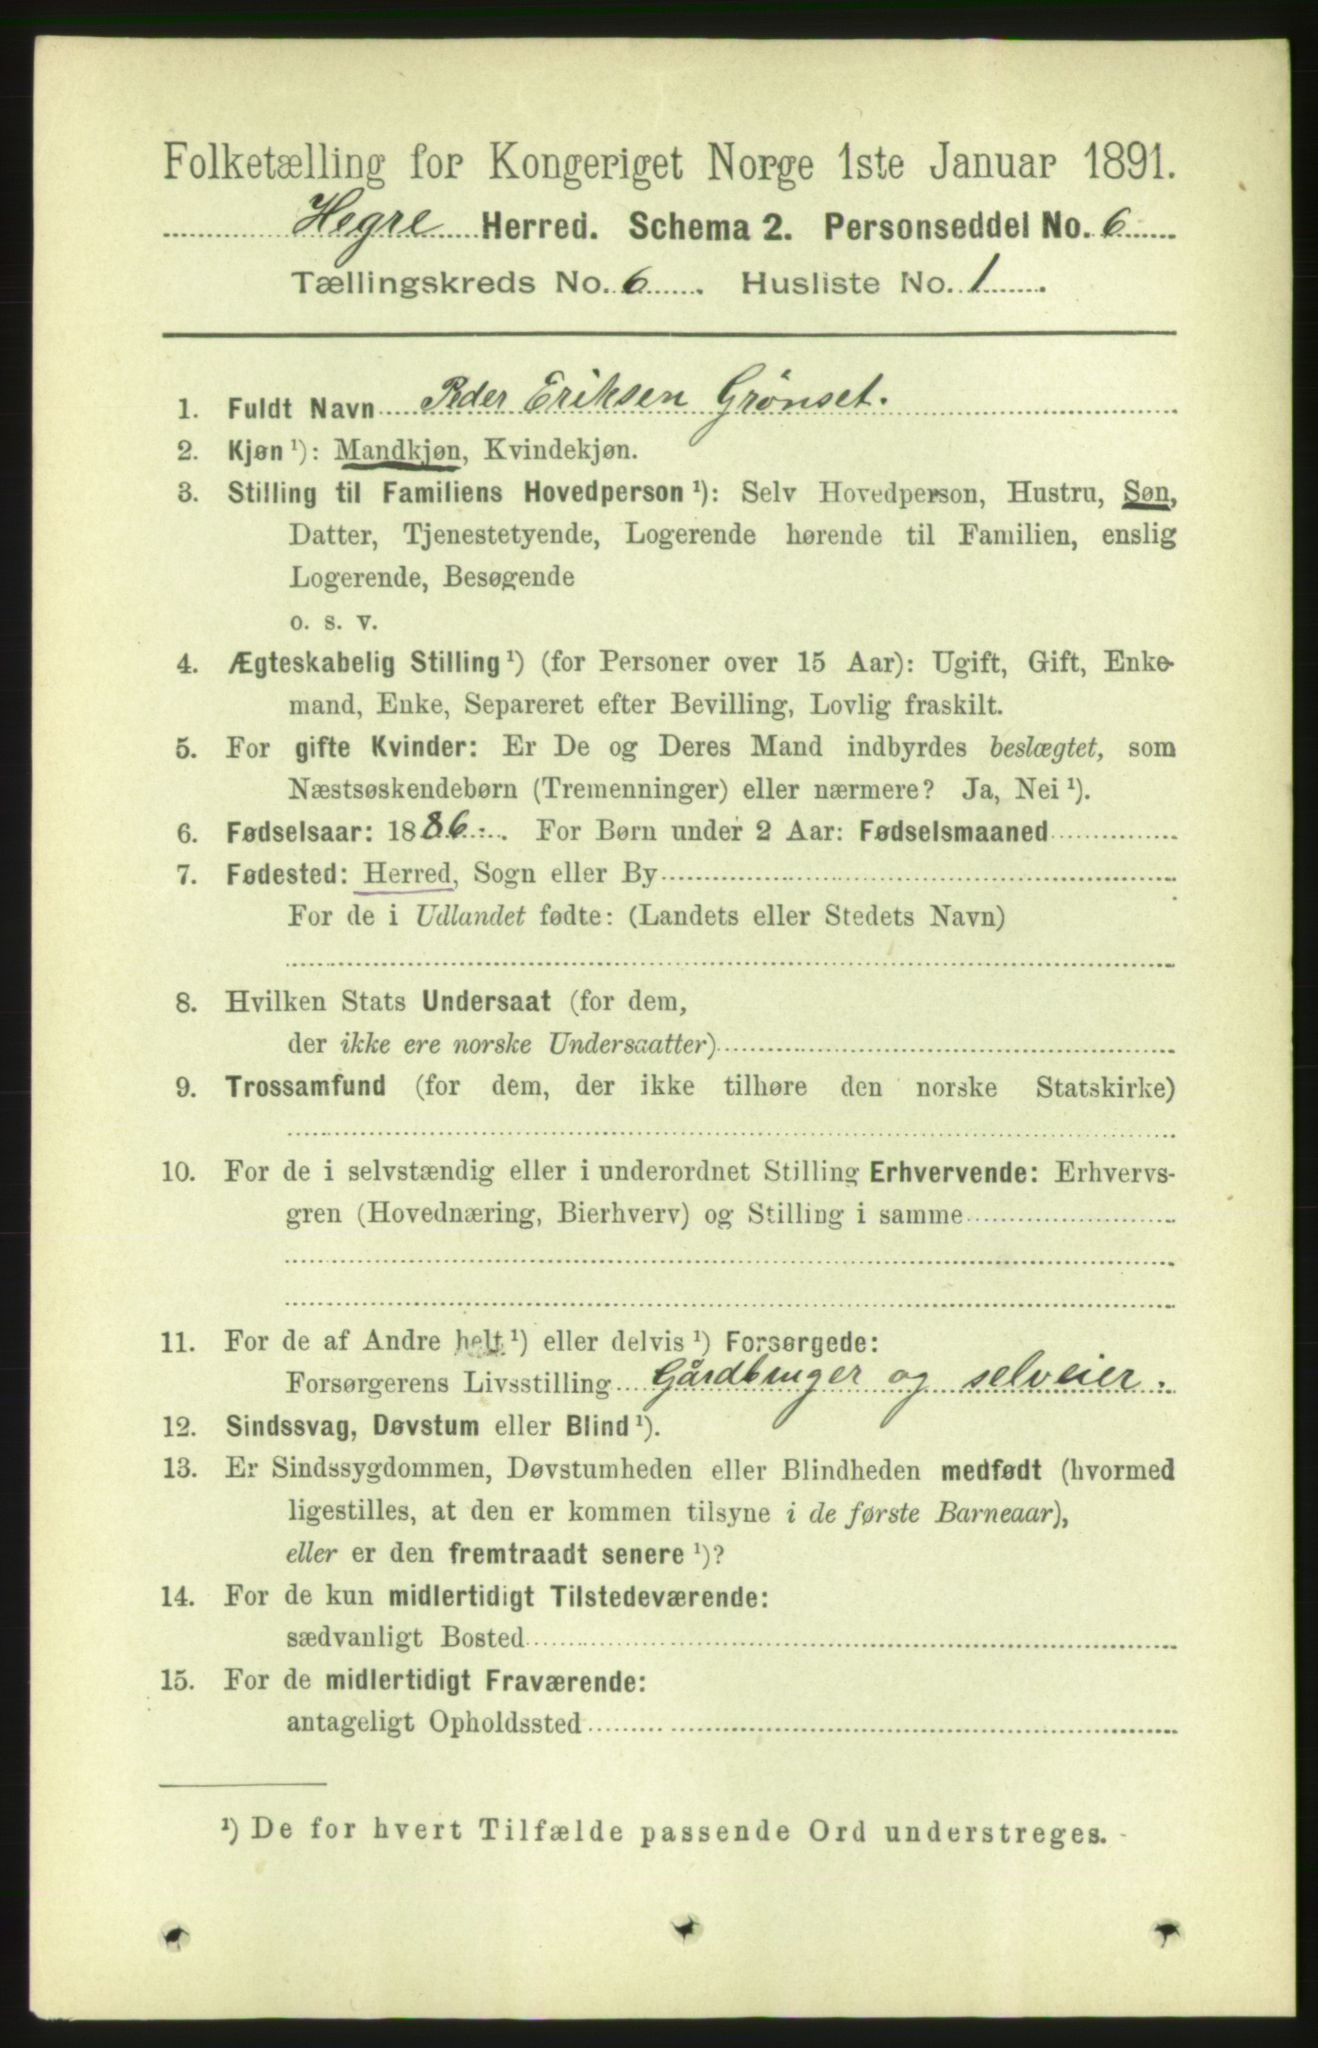 Folketælling for Kongeriget Norge 1ste Januar 1891.
Hegre Herred. Schema 2. Personseddel No. 6
Tællingskreds No. 6. Husliste No. 1.
1. Fuldt Navn Peder Eriksen Grönset.
2. Kjøn ¹): Mandkjøn, Kvindekjøn.
3. Stilling til Familiens Hovedperson ¹): Selv Hovedperson, Hustru, Søn,
Datter, Tjenestetyende, Logerende hørende til Familien, enslig
Logerende, Besøgende
o. s. v.
4. Ægteskabelig Stilling ¹) (for Personer over 15 Aar): Ugift, Gift, Enke-
mand, Enke, Separeret efter Bevilling, Lovlig fraskilt.
5. For gifte Kvinder: Er De og Deres Mand indbyrdes beslægtet, som
Næstsøskendebørn (Tremenninger) eller nærmere? Ja, Nei ¹).
6. Fødselsaar: 1886. For Børn under 2 Aar: Fødselsmaaned
7. Fødested: Herred, Sogn eller By
For de i Udlandet fødte: (Landets eller Stedets Navn)
8. Hvilken Stats Undersaat (for dem,
der ikke ere norske Undersaatter)
9. Trossamfund (for dem, der ikke tilhøre den norske Statskirke)
10. For de i selvstændig eller i underordnet Stilling Erhvervende: Erhvervs-
gren (Hovednæring, Bierhverv) og Stilling i samme
11. For de af Andre helt ¹) eller delvis ¹) Forsørgede:
Forsørgerens Livsstilling Gårdbruger og selveier.
12. Sindssvag, Døvstum eller Blind ¹).
13. Er Sindssygdommen, Døvstumheden eller Blindheden medfødt (hvormed
ligestilles, at den er kommen tilsyne i de første Barneaar),
eller er den fremtraadt senere ¹)?
14. For de kun midlertidigt Tilstedeværende:
sædvanligt Bosted
15. For de midlertidigt Fraværende:
antageligt Opholdssted
¹) De for hvert Tilfælde passende Ord understreges.